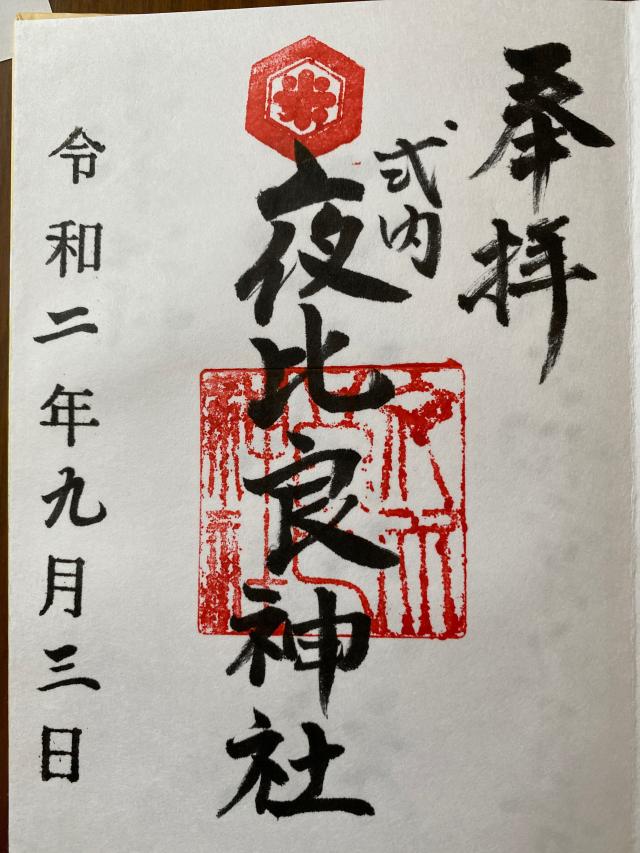 奉拝
式内
夜比良神社
令和二年九月三日